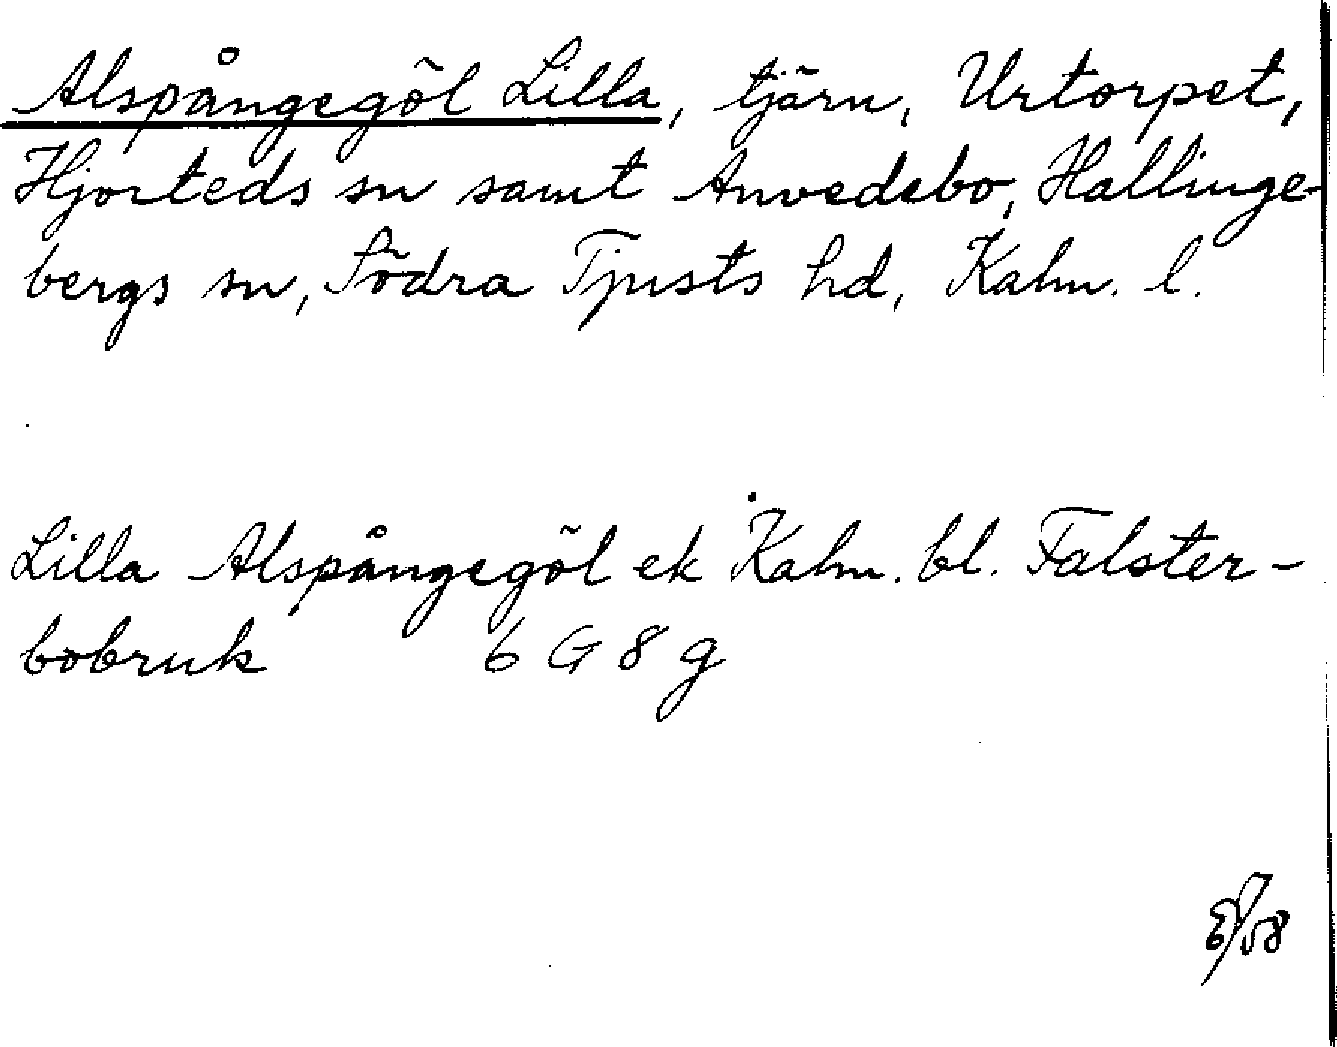 Alspångegöl Lilla, tjärn, Urtorpet,
Hjorteds sn samt Anvedebo, Hallinge-
bergs sn, Södra Tjusts hd, Kalm. l.
Lilla Alspångegöl ek Kalm. bl. Falster-
bobruk 6 G 8 g